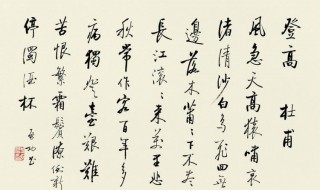 登高 杜甫
風急天高猿嘯哀
渚清沙白鳥飛回無
邊落木蕭蕭下不盡
長江滾滾來萬里悲
秋常作客百年多
病獨登臺艱難
苦恨繁霜鬢潦倒新
停濁酒杯 啟功書